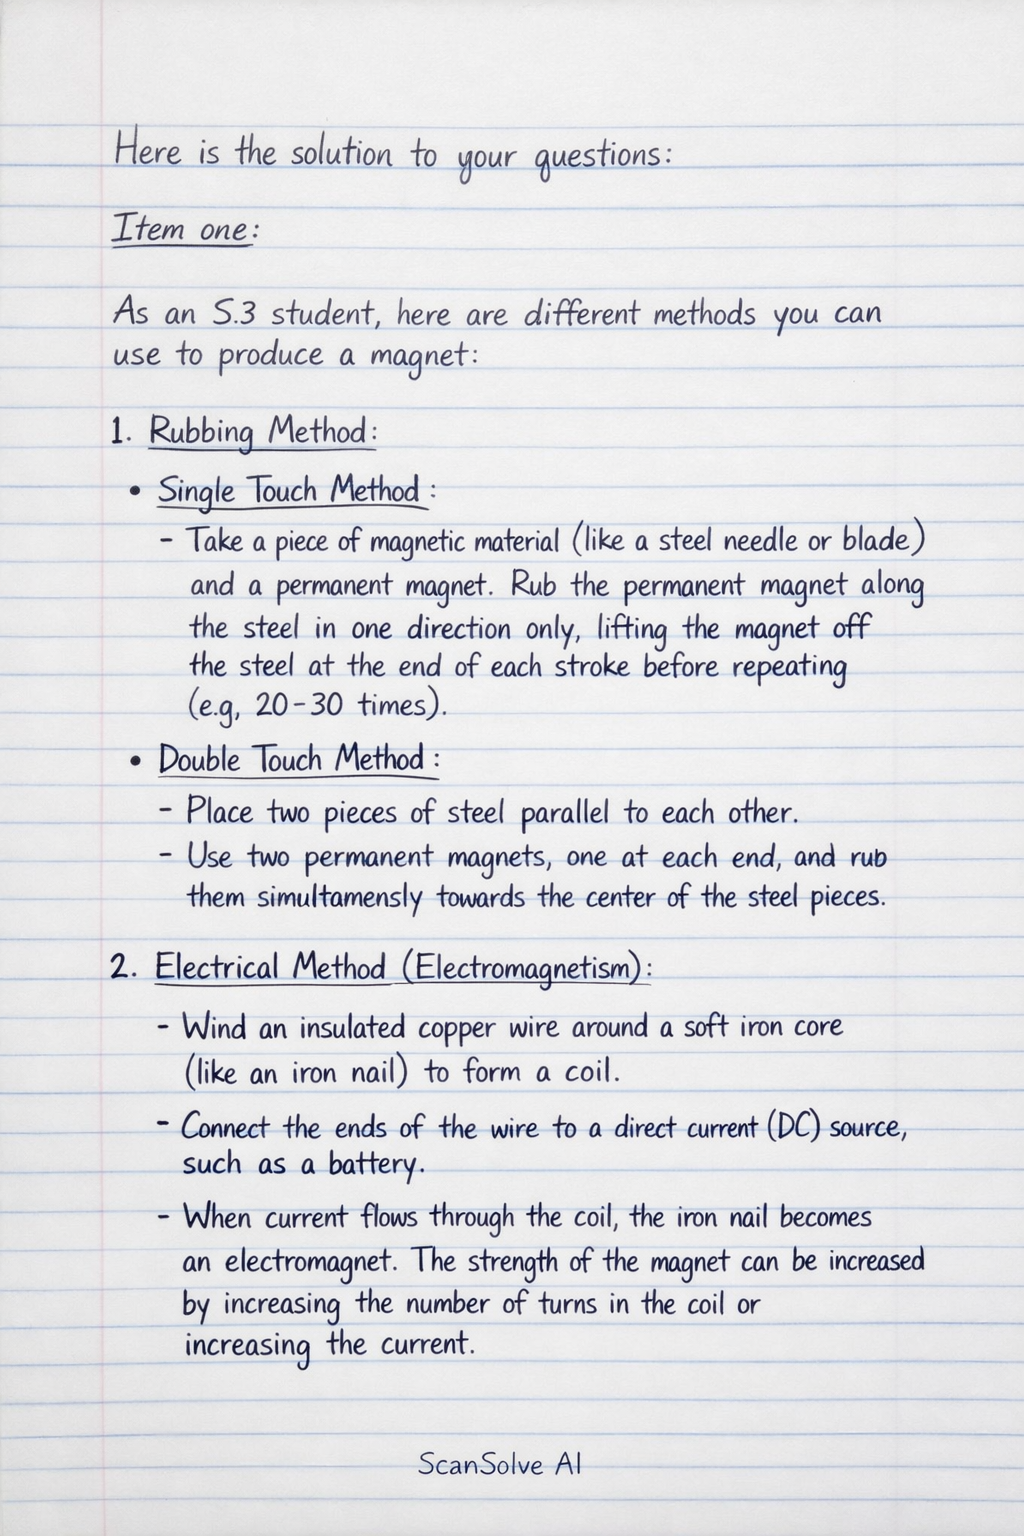 Here is the solution to your questions:
Item one:
As an S.3 student, here are different methods you can
use to produce a magnet:
1. Rubbing Method:
• Single Touch Method:
- Take a piece of magnetic material (like a steel needle or blade)
and a permanent magnet. Rub the permanent magnet along
the steel in one direction only, lifting the magnet off
the steel at the end of each stroke before repeating
(e.g, 20-30 times).
• Double Touch Method:
- Place two pieces of steel parallel to each other.
- Use two permanent magnets, one at each end, and rub
them simultamensly towards the center of the steel pieces.
2. Electrical Method (Electromagnetism):
- Wind an insulated copper wire around a soft iron core
(like an iron nail) to form a coil.
- Connect the ends of the wire to a direct current (DC) source,
such as a battery.
- When current flows through the coil, the iron nail becomes
an electromagnet. The strength of the magnet can be increased
by increasing the number of turns in the coil or
increasing the current.
ScanSolve AI